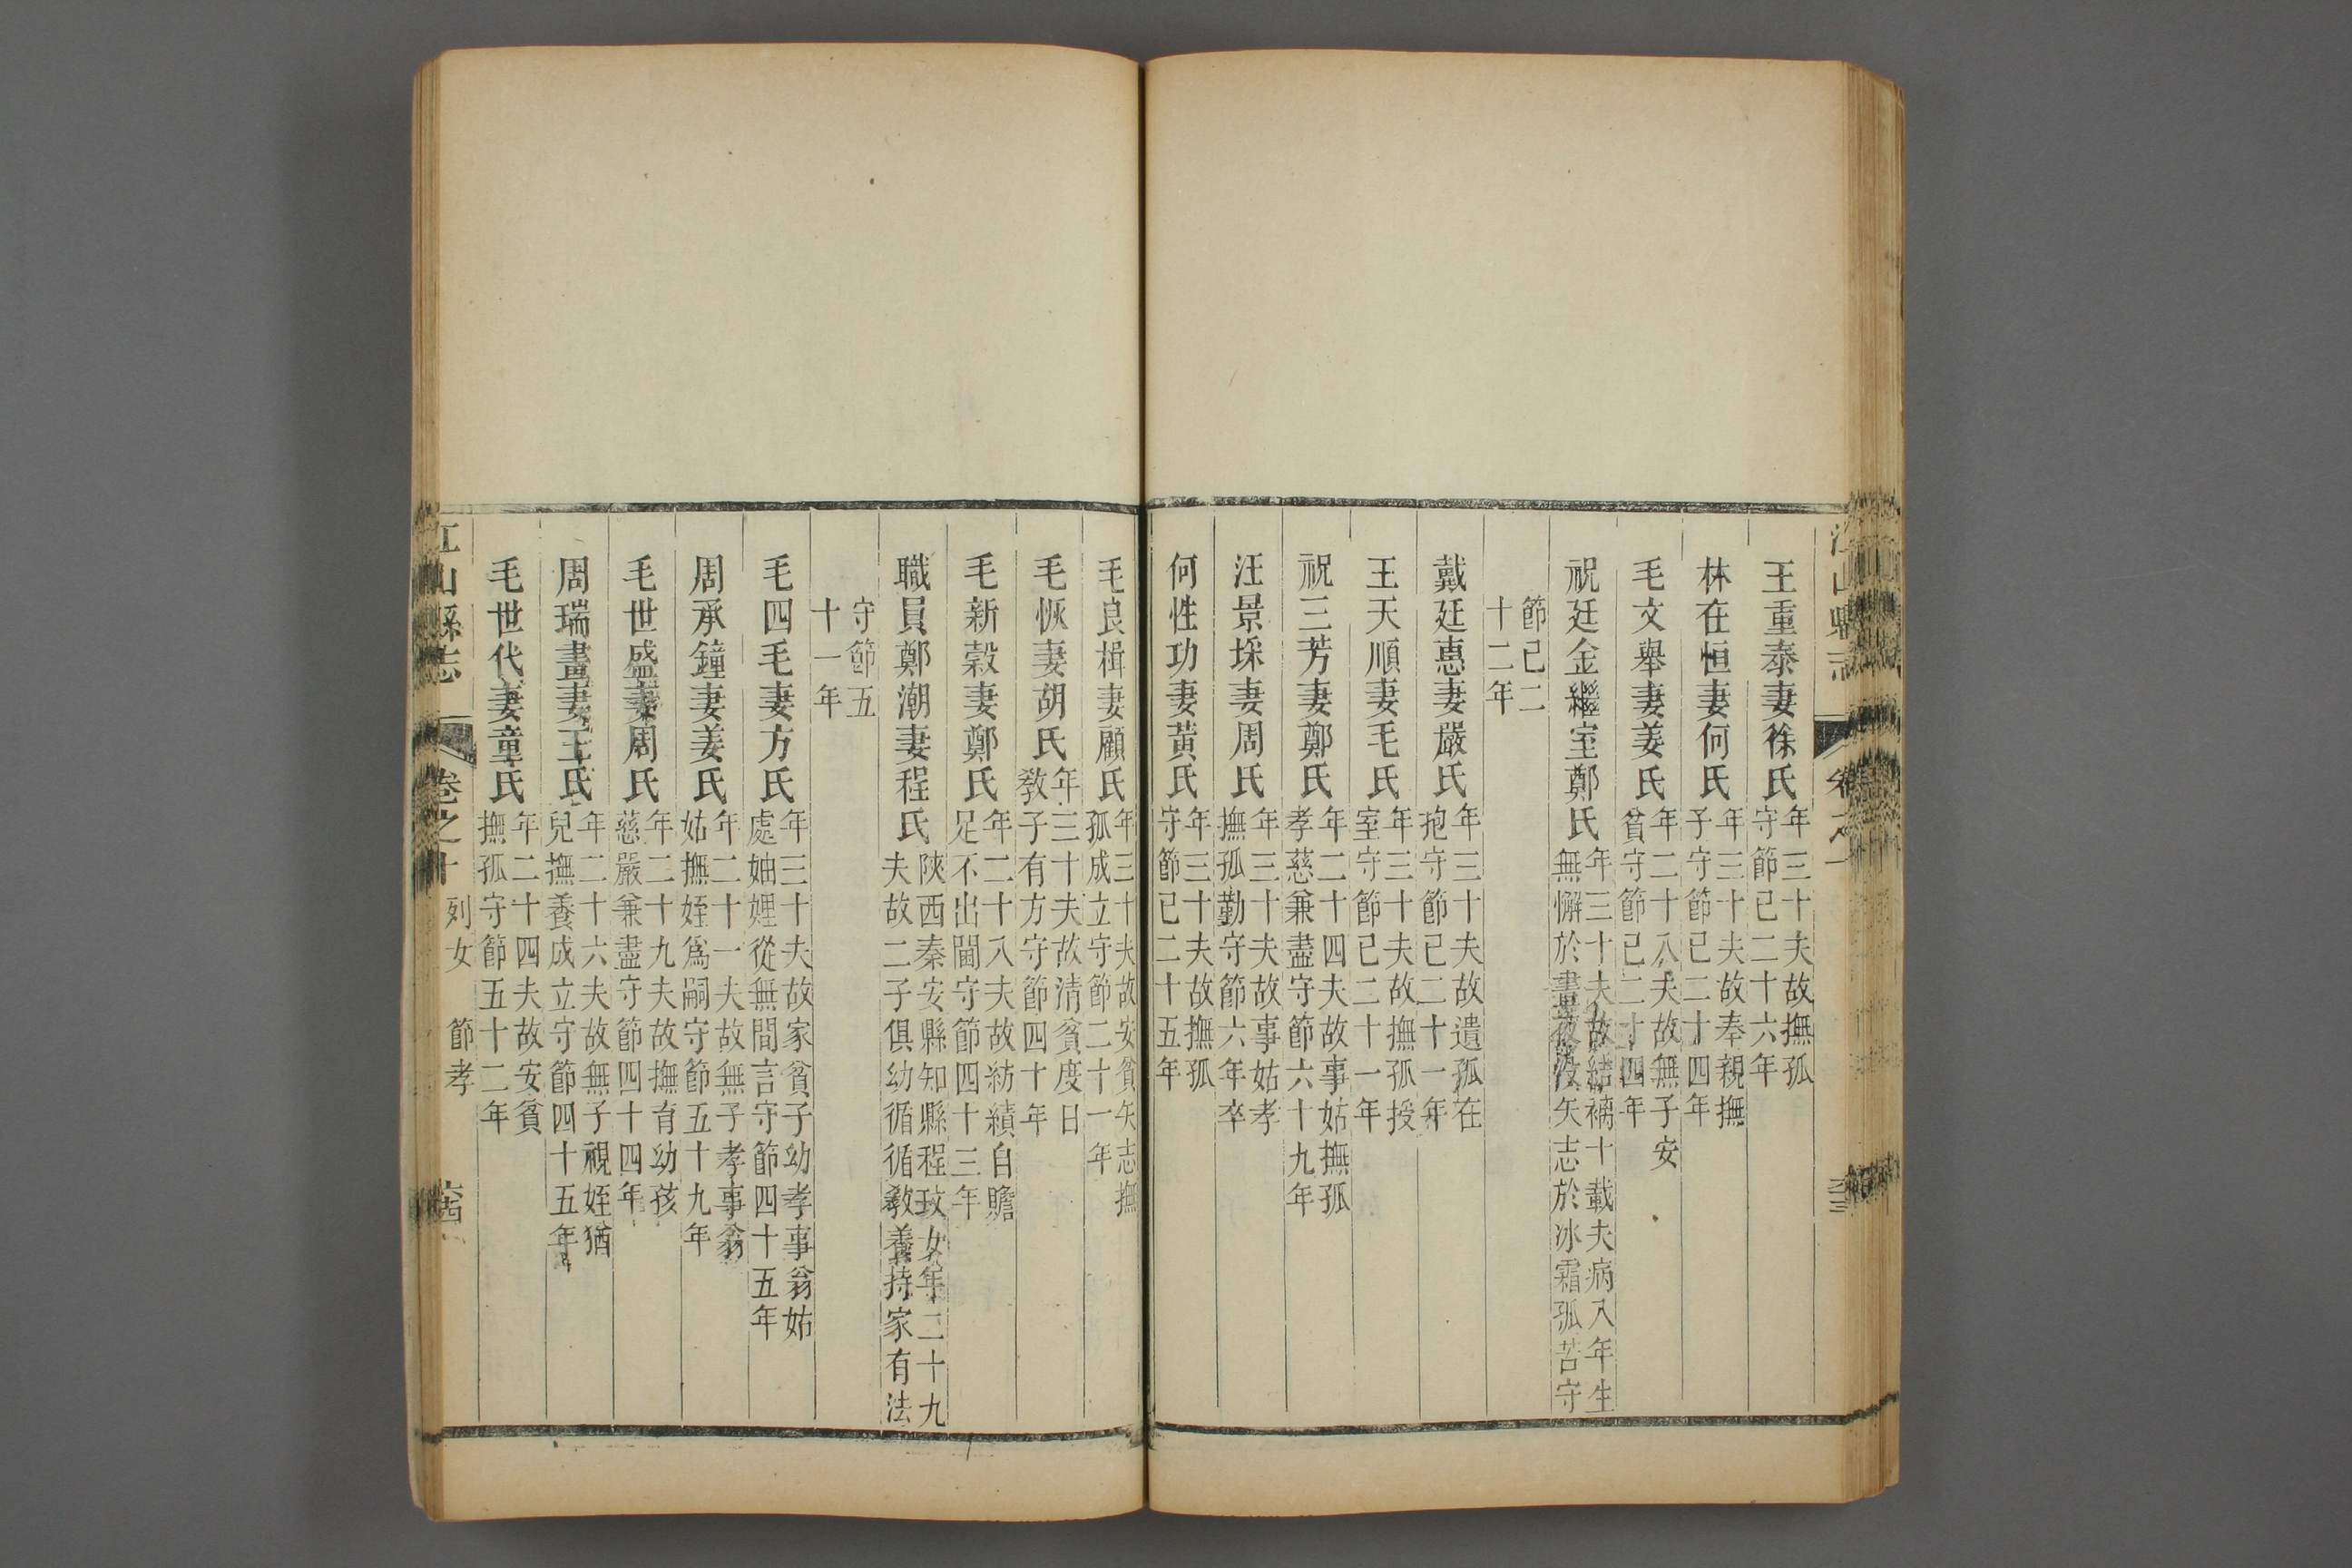 王重泰妻徐氏年三十夫故撫孤
守節已二十六年
林在恒妻何氏年三十夫故奉親撫
子守節已二十四年
毛文舉妻姜氏年二十八夫故無子安
貧守節已二十四年
祝廷金繼室鄭氏年三十夫故結褵十載夫病八年生
無懈於晝夜歿矢志於冰霜孤苦守
節已二
十二年
戴廷惪妻嚴氏年三十夫故遺孤在
抱守節已二十一年
王天順妻毛氏年三十夫故撫孤授
室守節已二十一年
祝三芳妻鄭氏年二十四夫故事姑撫孤
孝慈兼盡守節六十九年
汪景埰妻周氏年三十夫故事姑孝
撫孤勤守節六年卒
何性功妻黃氏年三十夫故撫孤
守節已二十五年
毛良楫妻顧氏年三十夫故安貧矢志撫
孤成立守節二十一年
毛恢妻胡氏年三十夫故清貧度日
敎子有方守節四十年
毛新穀妻鄭氏年二十八夫故紡績自贍
足不出閫守節四十三年
職員鄭潮妻程氏陝西秦安縣知縣程玟女年二十九
夫故二子俱幼循循敎養持家有法
守節五
十一年
毛四毛妻方氏年三十夫故家貧子幼孝事翁姑
處妯娌從無間言守節四十五年
周承鐘妻姜氏年二十一夫故無子孝事翁
姑撫姪爲嗣守節五十九年
毛世盛妻周氏年二十九夫故撫育幼孩
慈嚴兼盡守節四十四年
周瑞晝妻王氏年二十六夫故無子視姪猶
兒撫養成立守節四十五年
毛世代妻童氏年二十四夫故安貧
撫孤守節五十二年
江山縣志 卷之十 列女 節孝